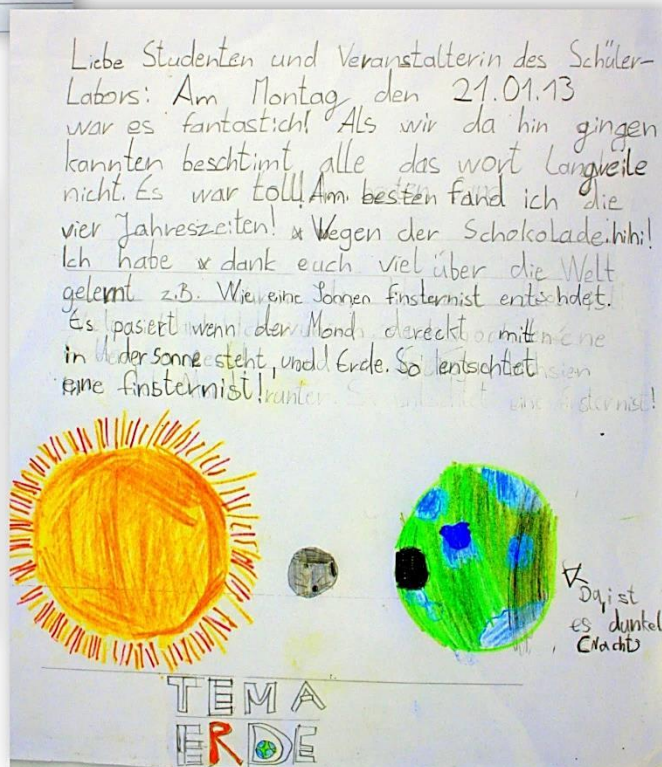 Liebe Studenten und Veranstalterin des Schüler-
Labors: Am Montag den 21.01.13
war es fantastich! Als wir da hin gingen
kannten beschtimt alle das wort Langweile
nicht. Es war toll! Am besten fand ich die
vier Jahreszeiten! Wegen der Schokolade.hihi!
Ich habe dank euch viel über die Welt
gelernt z.B. Wie eine Sonnen finsternist entschdet.
Es pasiert wenn der Mond dereckt mitt
in der Sonne steht, und Erde. So entsichtet
eine finsternist!
Da, ist
es dunkel
(Nacht)
TEMA
ERDE